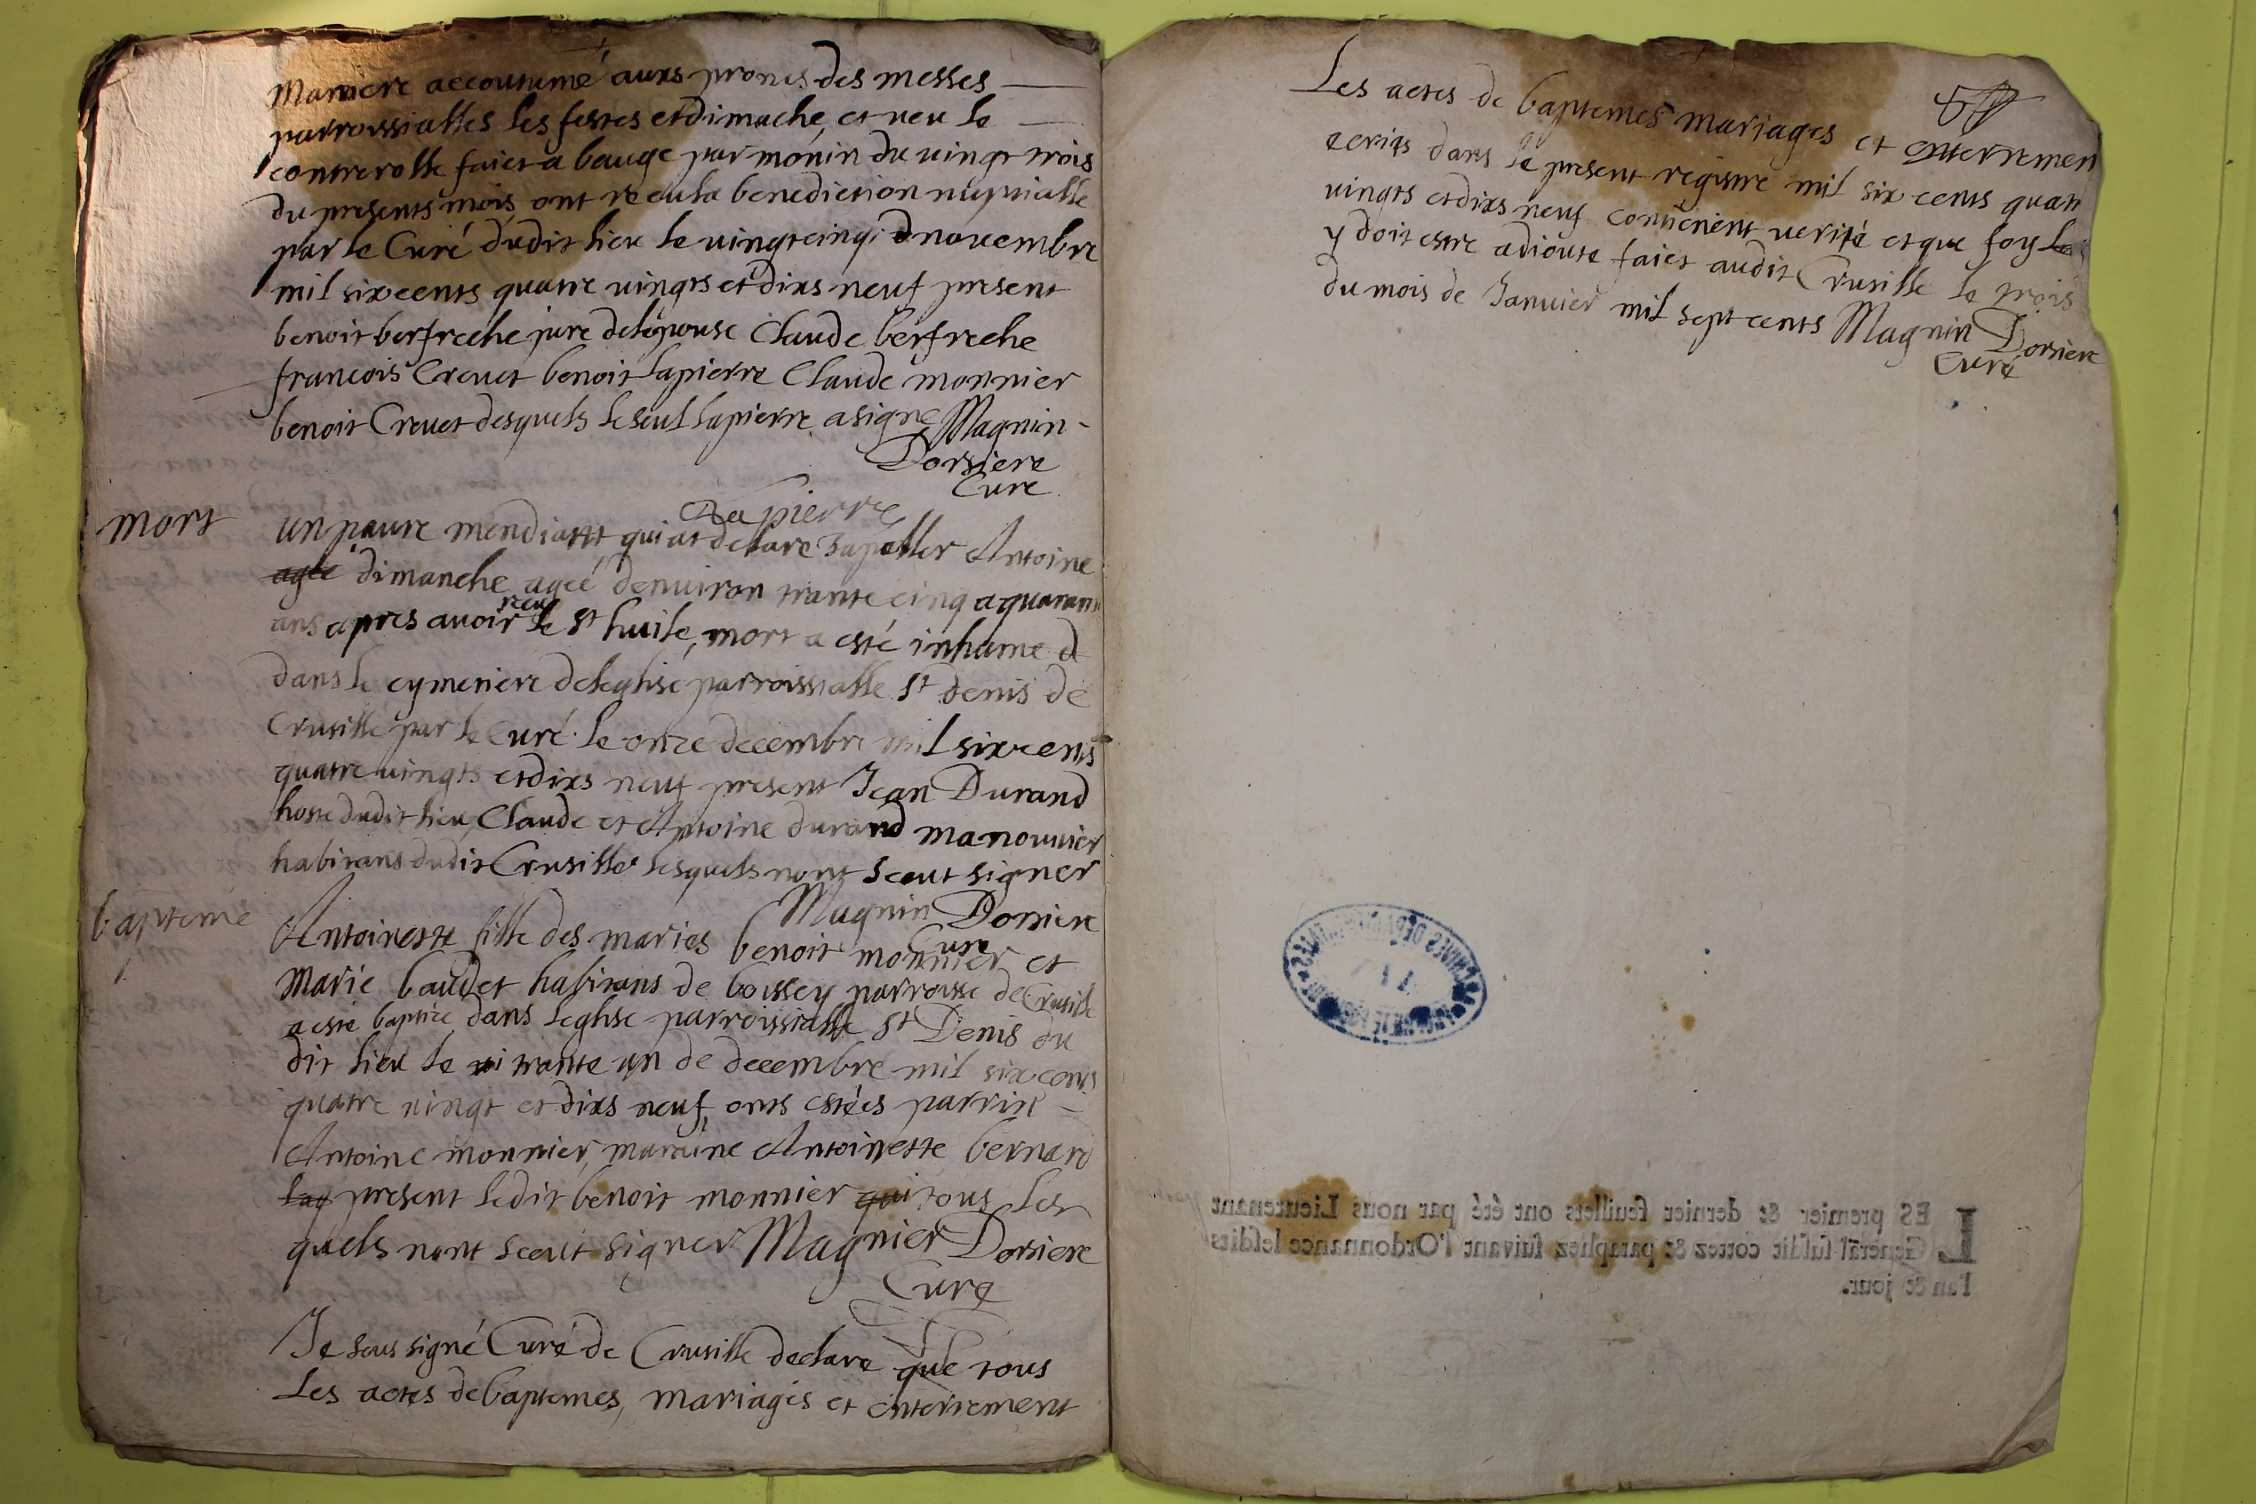 maniere accoutumé auxs prones des messes
parroissialles les festes et dimache, et veu le
controrolle faict a bauge par monin du vingt trois
du presents mois, ont receu la benediction nuptialle
par le Curé dudit lieu le vingt cinq d novembre
mil six cents quatre vingts et dixs neuf present
benoit berfreche pere de lépouse Claude berfreche
francois Crevet benoit lapierre Claude monnier
benoit Crevet desquels le seul lapierre a signe Magnin
Dorsiere
Curé
Lapierre
mort
un pauvre mendiant, qui at declare sapeller Antoine
agée dimanche, ageé denviron trante cinq a quarante
ans apres avoir receu le St huile, mort a esté inhumé d
dans le cymetiere de leglise parroissialle St denis de
Crusille par le Curé le onze decembre mil six cents
quatre vingts et dixs neuf present Jean Durand
hoste dudit lieu, Claude et Antoine durand manouvier
habitans dudit Crusille lesquels nont sceut signer
Magnin Dorsiere
Curé
bapteme
Antoinette fille des mariés benoit monnier et
Marie baudet habitans de boissey parroisse de Crusille
a esté baptiée dans leglise parroissialle St Denis du
dit lieu le vi trante un de decembre mil six cents
quatre vingt et dixs neuf, onts estées parrin
Antoine monnier, maraine Antoinette bernard
laq present ledit benoit monnier qui tous les
quels nont sceut signer Magnier Dorsiere
Curé
Je sous signé Curé de Crusille declare que tous
Les actes de baptemes, mariages et enterrement
Les actes de baptemes mariages et enterremen
ecrits dans le present registre mil six cents quat
vingts et dixs neuf contienent verité et que foy
y doit estre adioute faict audit Crusille le trois
du mois de Janvier mil sept cents Magnin Dorsiere
Curé
LES premier & dernier feuillets ont été par nous Lieutenant
General susdit cottez & paraphez suivant l'Ordonnance lesdits
l'an & jour.